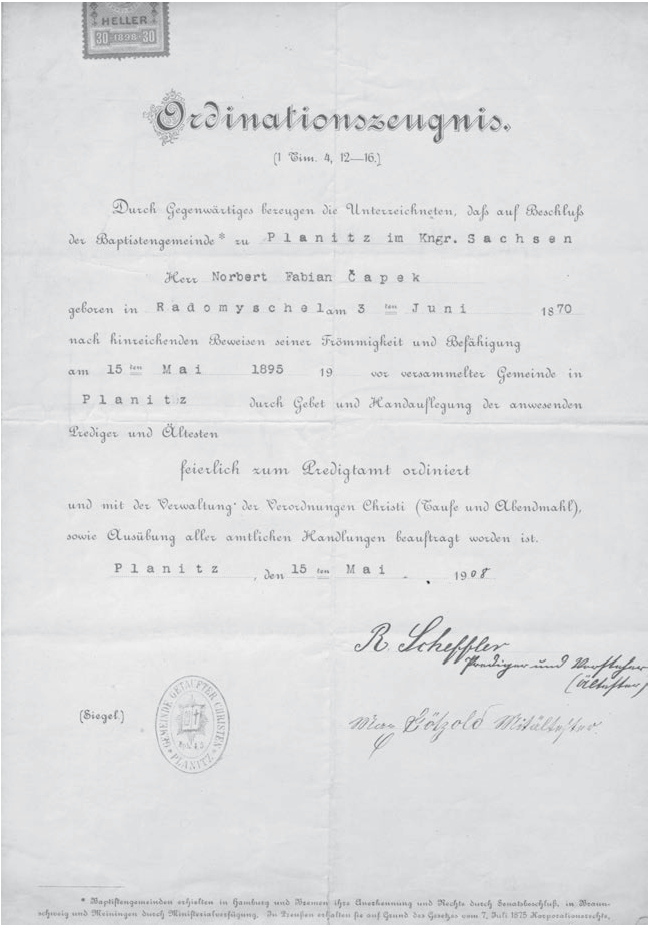 HELLER
30 1898 30
Ordinationszeugnis.
(1 Tim. 4, 12—16.)
Durch Gegenwärtiges bezeugen die Unterzeichneten, daß auf Beschluß
der Baptistengemeinde* zu Planitz im Kngr. Sachsen
Herr Norbert Fabian Čapek
geboren in Radomyschel am 3ten Juni 1870
nach hinreichenden Beweisen seiner Frömmigkeit und Befähigung
am 15ten Mai 1895 19 vor versammelter Gemeinde in
Planitz durch Gebet und Handauflegung der anwesenden
Prediger und Ältesten
feierlich zum Predigtamt ordiniert
und mit der Verwaltung der Verordnungen Christi (Taufe und Abendmahl),
sowie Ausübung aller amtlichen Handlungen beauftragt worden ist.
Planitz, den 15ten Mai. 1908
R. Scheffler
Prediger und Vorsteher
(Ältester)
(Siegel.)
GEMEINDE GETAUFTER CHRISTEN
PLANITZ
Max Götzold Mitältester.
* Baptistengemeinden erhielten in Hamburg und Bremen ihre Anerkennung und Rechte durch Senatsbeschluß, in Braun-
schweig und Meiningen durch Ministerialverfügung. In Preußen erhalten sie auf Grund des Gesetzes vom 7. Juli 1875 Korporationsrechte,